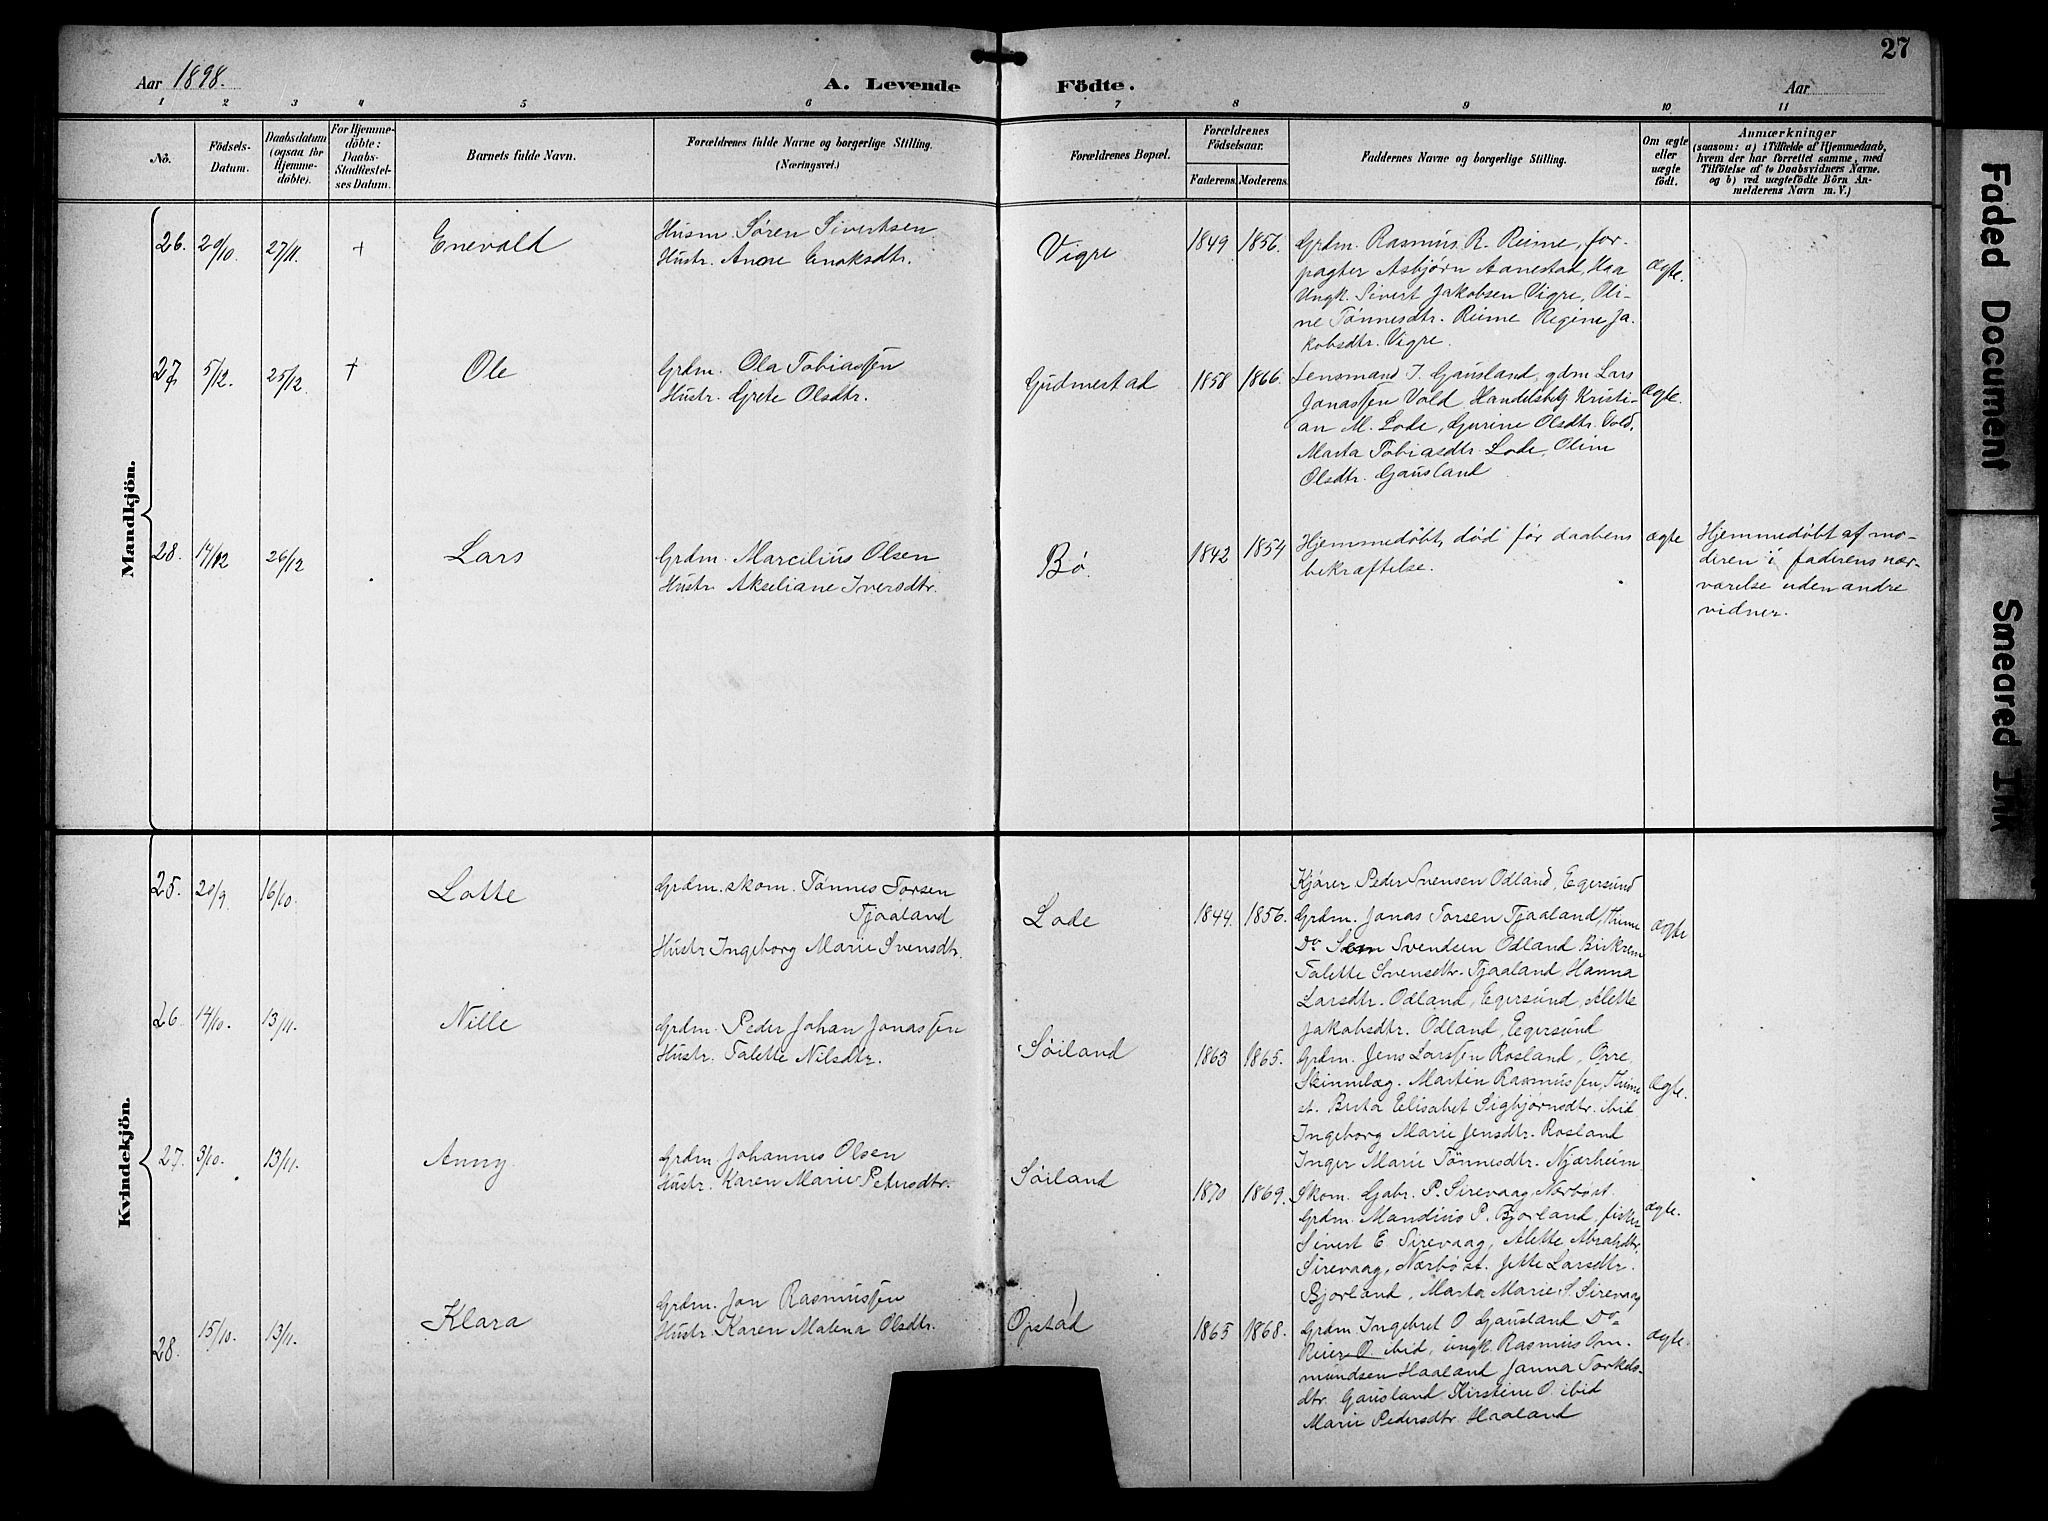 27
Aar 1898.
A. Levende Födte.
Aar
1 2 3 4 5 6 7 8 9 10 11
No.
Födsels-
Datum.
Daabsdatum
(ogsaa for
Hjemme-
döbte).
For Hjemme-
döbte:
Daabs-
Stadfæstel-
ses Datum.
Barnets fulde Navn.
Forældrenes fulde Navne og borgerlige Stilling.
(Næringsvei.)
Forældrenes Bopæl.
Forældrenes
Födselsaar.
Faderens. Moderens.
Faddernes Navne og borgerlige Stilling.
Om ægte
eller
uægte
födt.
Anmærkninger
(saasom: a) i Tilfælde af Hjemmedaab,
hvem der har forrettet samme, med
Tilföielse af to Daabsvidners Navne,
og b) ved uægtefödte Börn An-
melderens Navn m. V.)
Mandkjön.
26. 29/10 27/11 +
Enevald
Husm. Søren Sivertsen
Hustr. Anne Enoksdtr.
Vigre
1849 1856.
Grdm. Rasmus R. Reime, for-
pagter Asbjørn Aanestad, Haa
Ungk. Sivert Jakobsen Vigre, Oli-
ne Tønnesdtr. Reime Regine Ja-
kobsdtr. Vigre.
ægte.
27. 5/12. 25/12 +
Ole
Grdm. Ola Tobiassen
Hustr. Grete Olsdtr.
Gudmestad
1858 1866.
Lensmand I. Gausland, gdm Lars
Jonassen Vold Handelsbetj Kristi-
an M. Lode, Gurine Olsdtr. Vold,
Marta Tobiasdtr Lode, Oline
Olsdtr. Gausland
ægte.
28. 14/12 26/12
Lars
Grdm. Marcilius Olsen
Hustr. Akseliane Iversdtr.
Bø.
1842 1854
Hjemmedøbt, død før daabens
bekræftelse.
ægte
Hjemmedøbt af mo-
deren i faderens nær-
værelse uden andre
vidner.
Kvindekjön.
25. 20/9. 16/10.
Lotte
Grdm. skom. Tønnes Torsen
Tjaaland
Hustr Ingeborg Marie Svensdtr.
Lode
1844. 1856.
Kjører Peder Svensen Odland, Egersund
Grdm. Jonas Torsen Tjaaland, Thime
Do Svendsen Odland Birkrem
Talette Svensdtr. Tjaaland Hanna
Larsdtr. Odland, Egersund, Alette
Jakobsdtr. Odland, Egersund
ægte
26. 14/10. 13/11.
Nille
Grdm. Peder Johan Jonassen
Hustr. Talette Nilsdtr.
Søiland
1863 1865.
Grdm. Jens Larssen Rosland, Orre
Skinnlæg. Martin Rasmussen, Thime
st. Berta Elisabet Sigbjørnsdtr. ibid
Ingeborg Marie Jensdtr. Rosland
Inger Marie Tønnesdtr. Njærheim
ægte.
27. 3/10. 13/11.
Anny
Grdm. Johannes Olsen
Hustr. Karen Marie Petersdtr.
Søiland
1870 1869.
Skom. Gabr. P. Sirevaag, Nærbøst.
Grdm. Mandius P. Bjorland, fisker
Sivert E. Sirevaag, Alette Abrahdtr,
Sirevaag, Nærbø st. Jette Larsdtr.
Bjorland, Marta Marie S. Sirevaag
ægte.
28. 15/10. 13/11.
Klara
Grdm. Jon Rasmussen
Hustr Karen Malena Olsdtr.
Opstad
1865 1868.
Grdm. Ingebret O Gausland Do
Reier O. ibid, ungk. Rasmus Om-
mundsen Haaland Janna Torkels-
dtr. Gausland, Kirstine O. ibid
Marie Pedersdtr. Haaland
ægte.
Faded Document
Smeared Ink